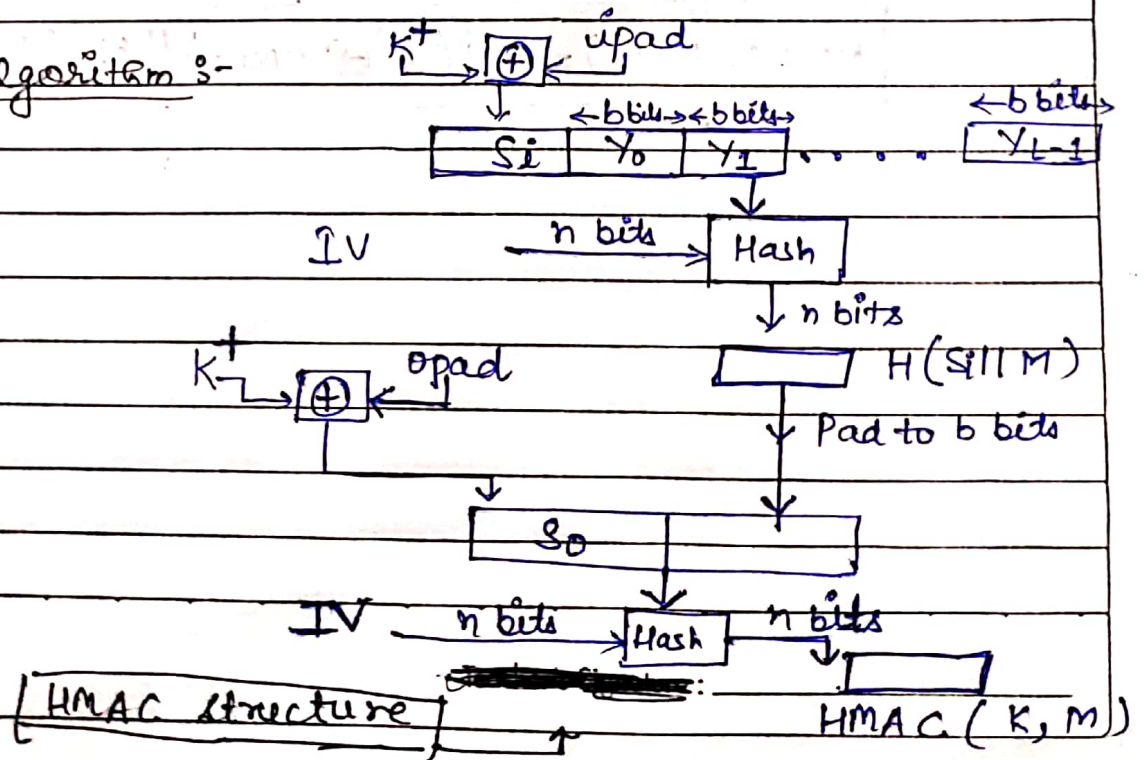 K+ ⊕ ipad
lgorithm :-
←b bits→ ←b bits→ ←b bits→
Si Y0 Y1 . . . . YL-1
IV n bits Hash
n bits
K+ ⊕ opad H(Si||M)
Pad to b bits
So
IV n bits Hash n bits
[HMAC structure]
HMAC (K, M)